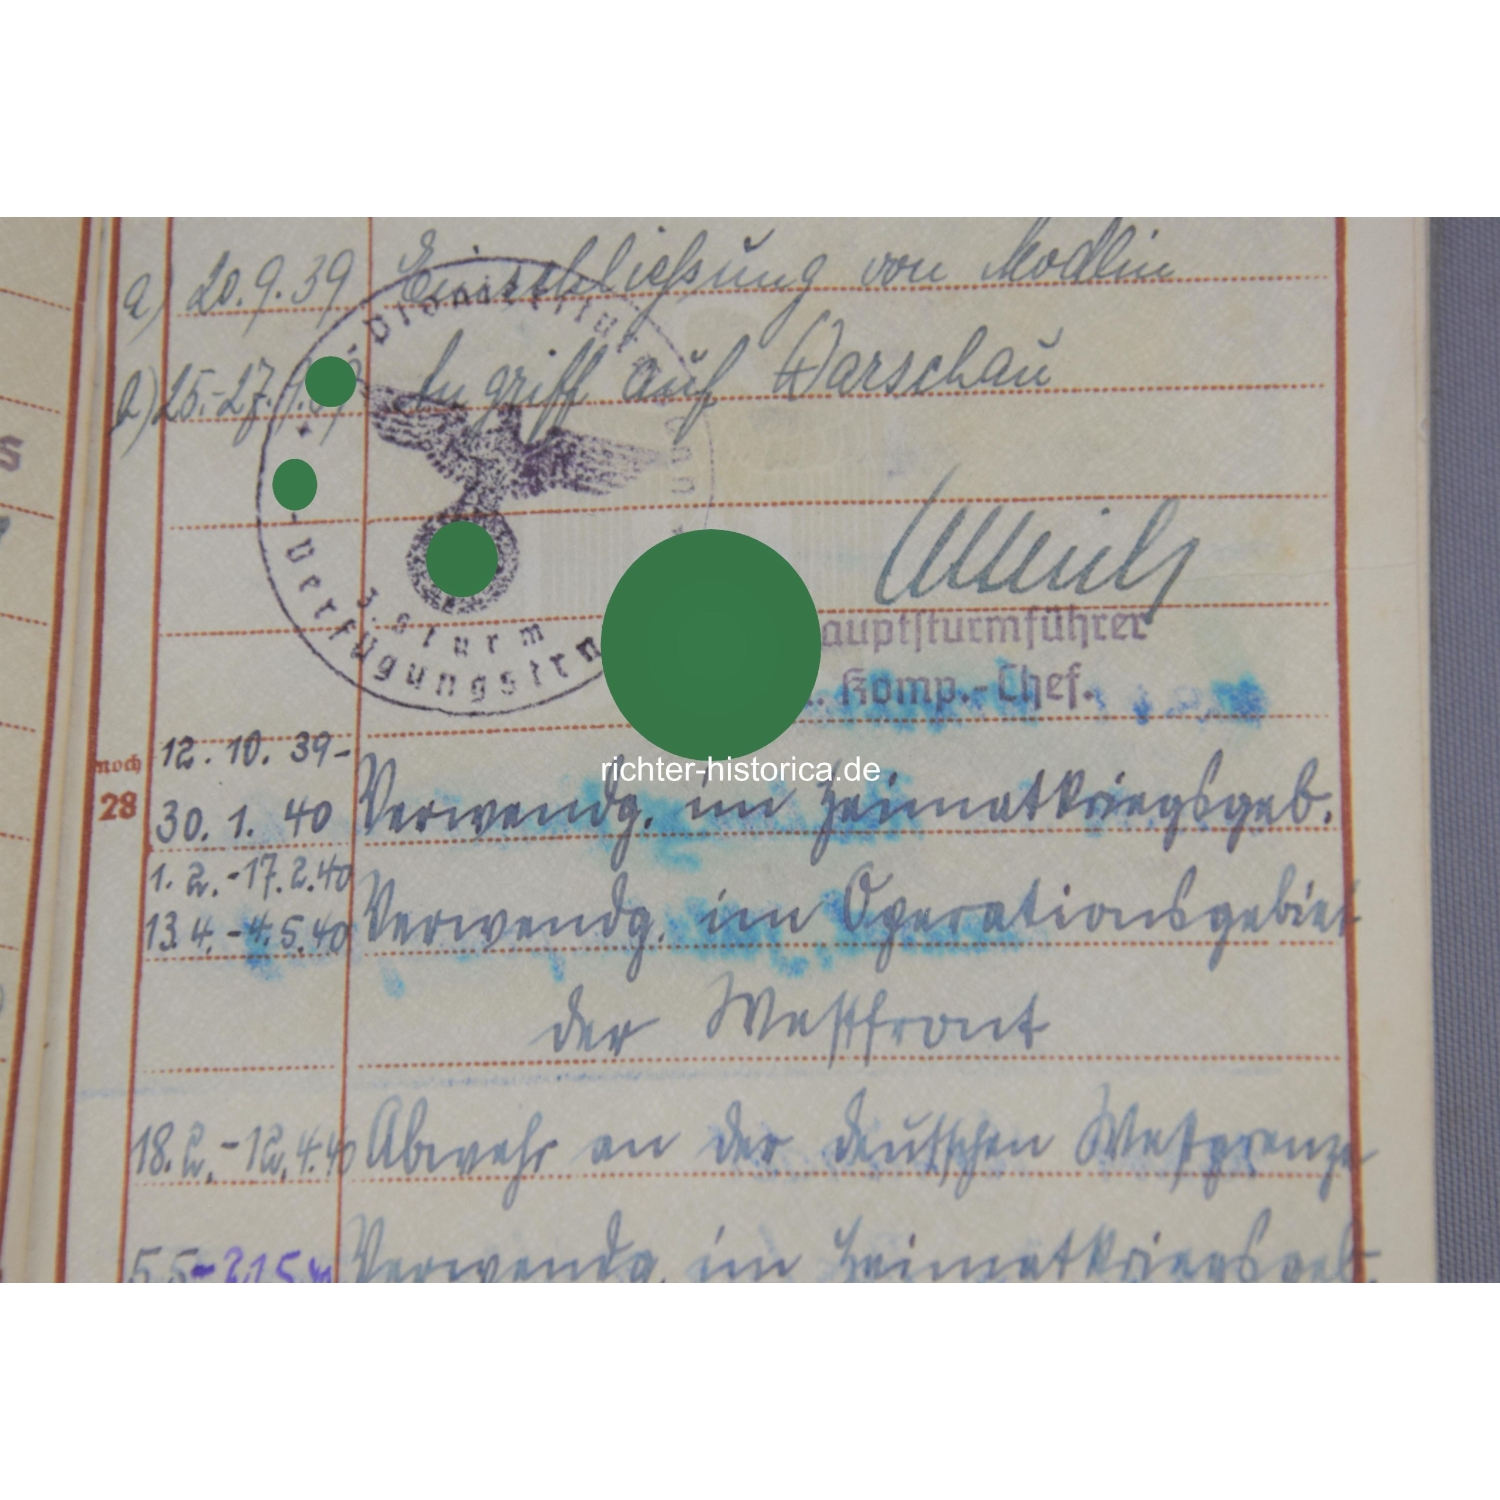 a) 20.9.39 Einschließung von Modlin
a) 25.-27. Angriff auf Warschau
Pioniersturm
3. Sturm
Verfügungstru
auptsturmführer
Komp.-Chef.
noch 28
12.10.39-
30.1.40 Verwendg. im Heimatkriegsgeb.
1.2.-17.2.40
13.4.-4.5.40 Verwendg. im Operationsgebiet
der Westfront
18.2.-12.4.40 Abwehr an der deutschen Westgrenze
5.5-21.5. Verwendg. im Heimatkriegsgeb.
richter-historica.de